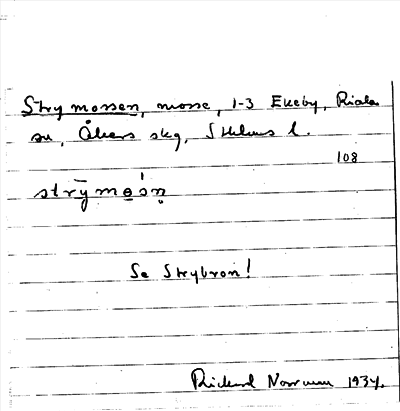 Strymossen, mosse, 1-3 Ekeby, Riala
sn, Åkers skg, Sthlms l.
108
strȳmo̲śṇ
Se Strybron!
Rickard 1934.